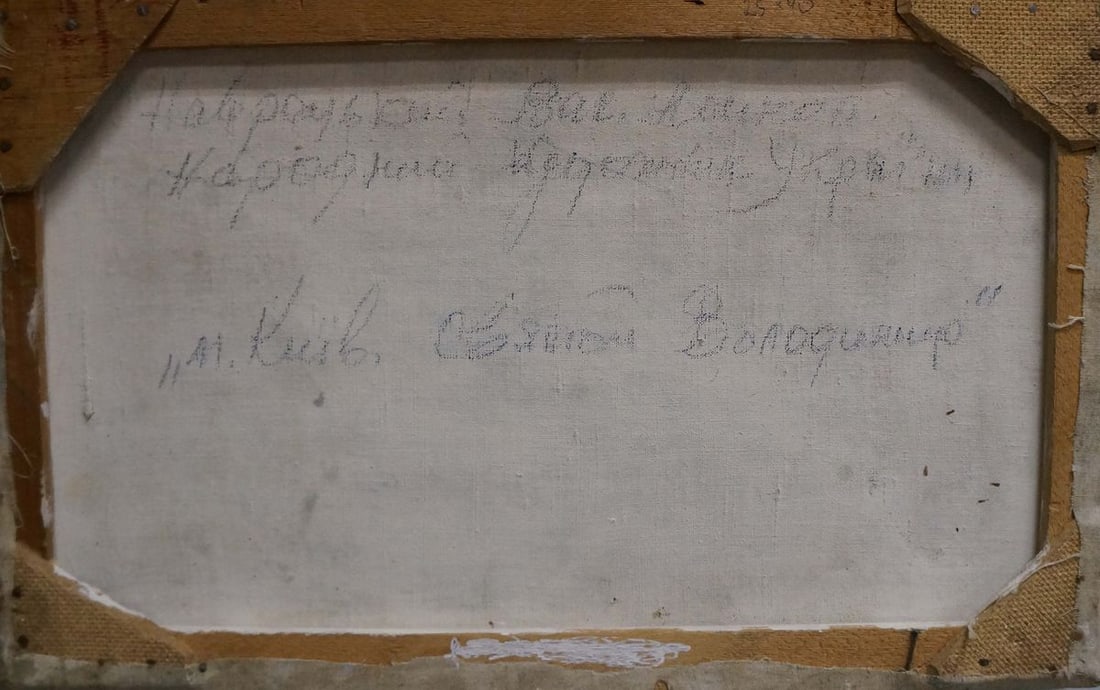 25-40
Навроцький Вас. Микол.
Народний художник України
„м. Київ. Святий Володимир"